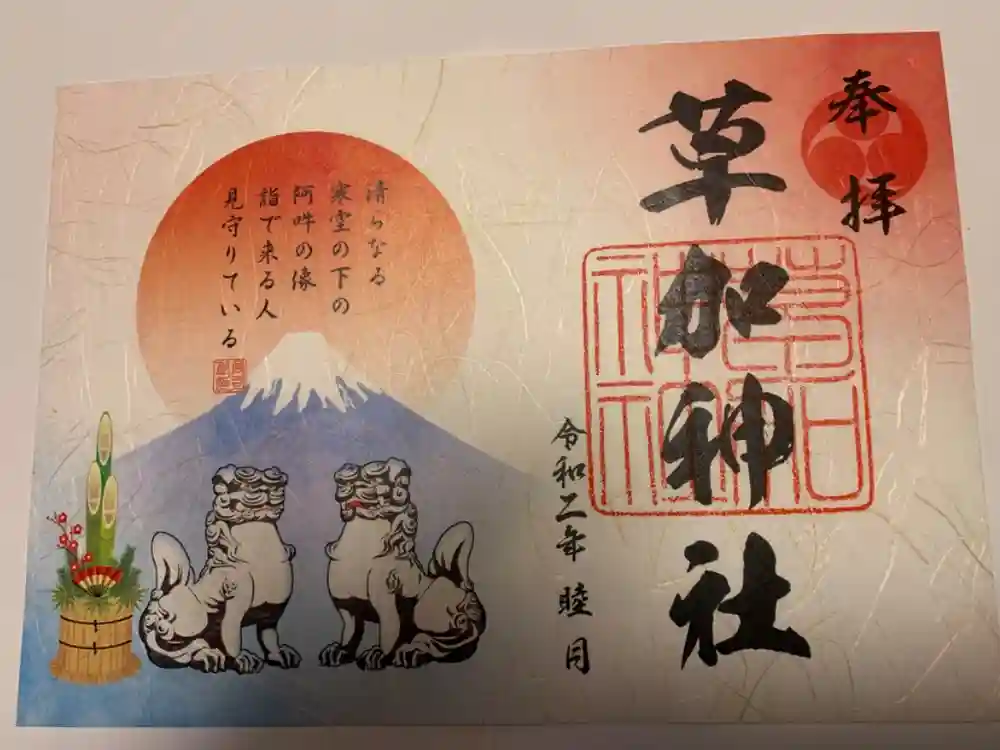 奉拝
草加神社
草加
神社
令和二年 睦月
清らなる
寒空の下の
阿吽の像
詣で来る人
見守りている